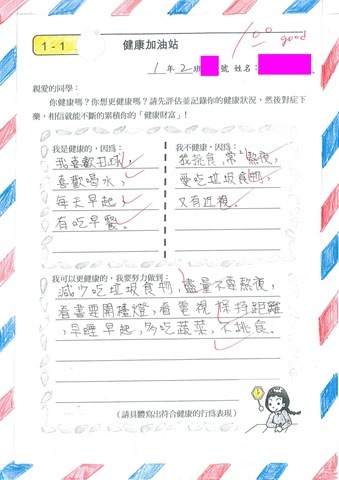 1-1
健康加油站
100
good
1年2班 號 姓名：
親愛的同學：
你健康嗎？你想更健康嗎？請先評估並記錄你的健康狀況，然後對症下
藥，相信就能不斷的累積你的「健康財富」！
我是健康的，因為：
我喜歡打球，
喜歡喝水，
每天早起，
有吃早餐。
我不健康，因為：
我挑食，常熬夜，
愛吃垃圾食物，
又有近視。
我可以更健康的，我要努力做到：
減少吃垃圾食物，儘量不要熬夜，
看書要開檯燈，看電視保持距離
，早睡早起，多吃蔬菜，不挑食。
（請具體寫出符合健康的行為表現）